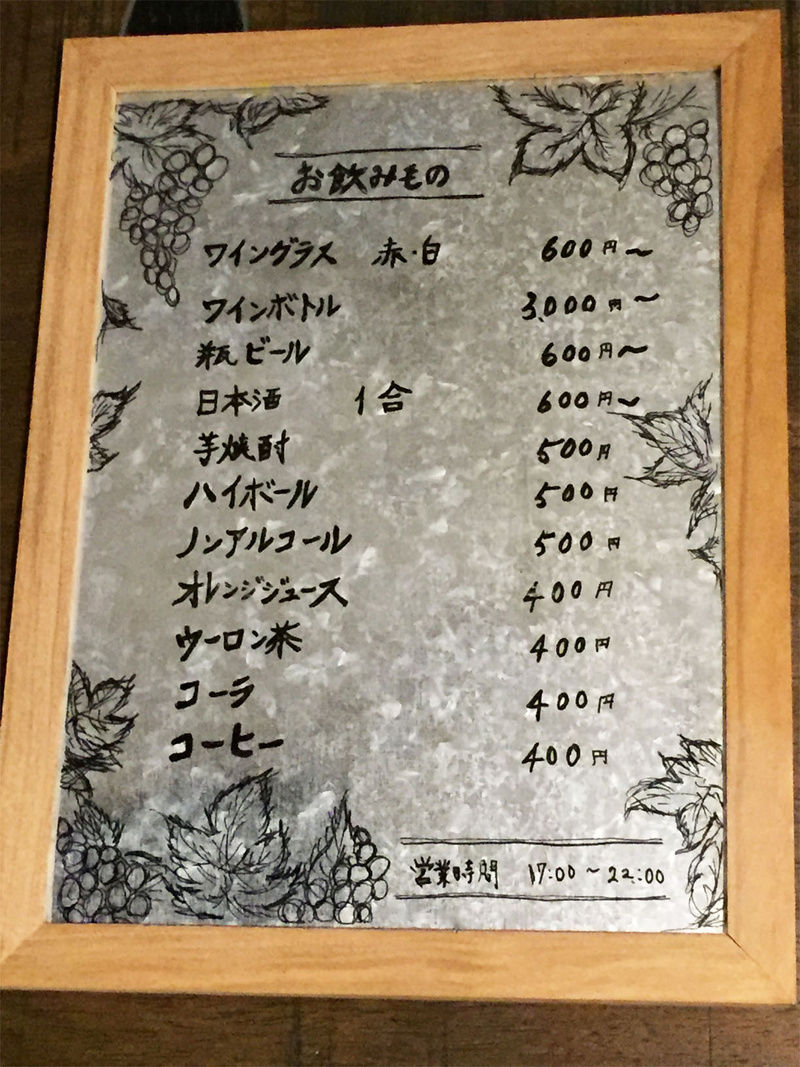 お飲みもの
ワイングラス 赤・白 600円～
ワインボトル 3,000円～
瓶ビール 600円～
日本酒 1合 600円～
芋焼酎 500円
ハイボール 500円
ノンアルコール 500円
オレンジジュース 400円
ウーロン茶 400円
コーラ 400円
コーヒー 400円
営業時間 17:00～22:00